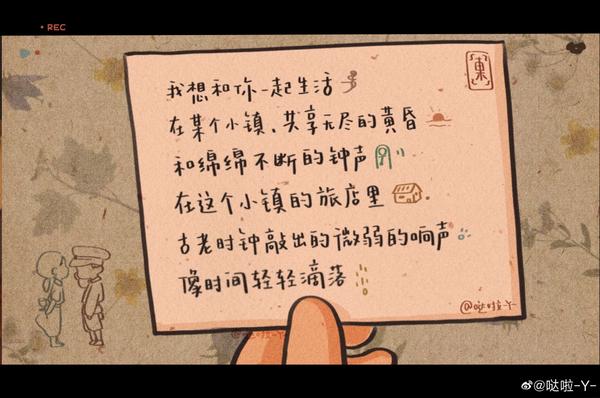 REC
東
我想和你一起生活
在某个小镇，共享无尽的黄昏
和绵绵不断的钟声
在这个小镇的旅店里
古老时钟敲出的微弱的响声
像时间轻轻滴落
@哒啦-Y-
@哒啦-Y-
@哒啦-Y-